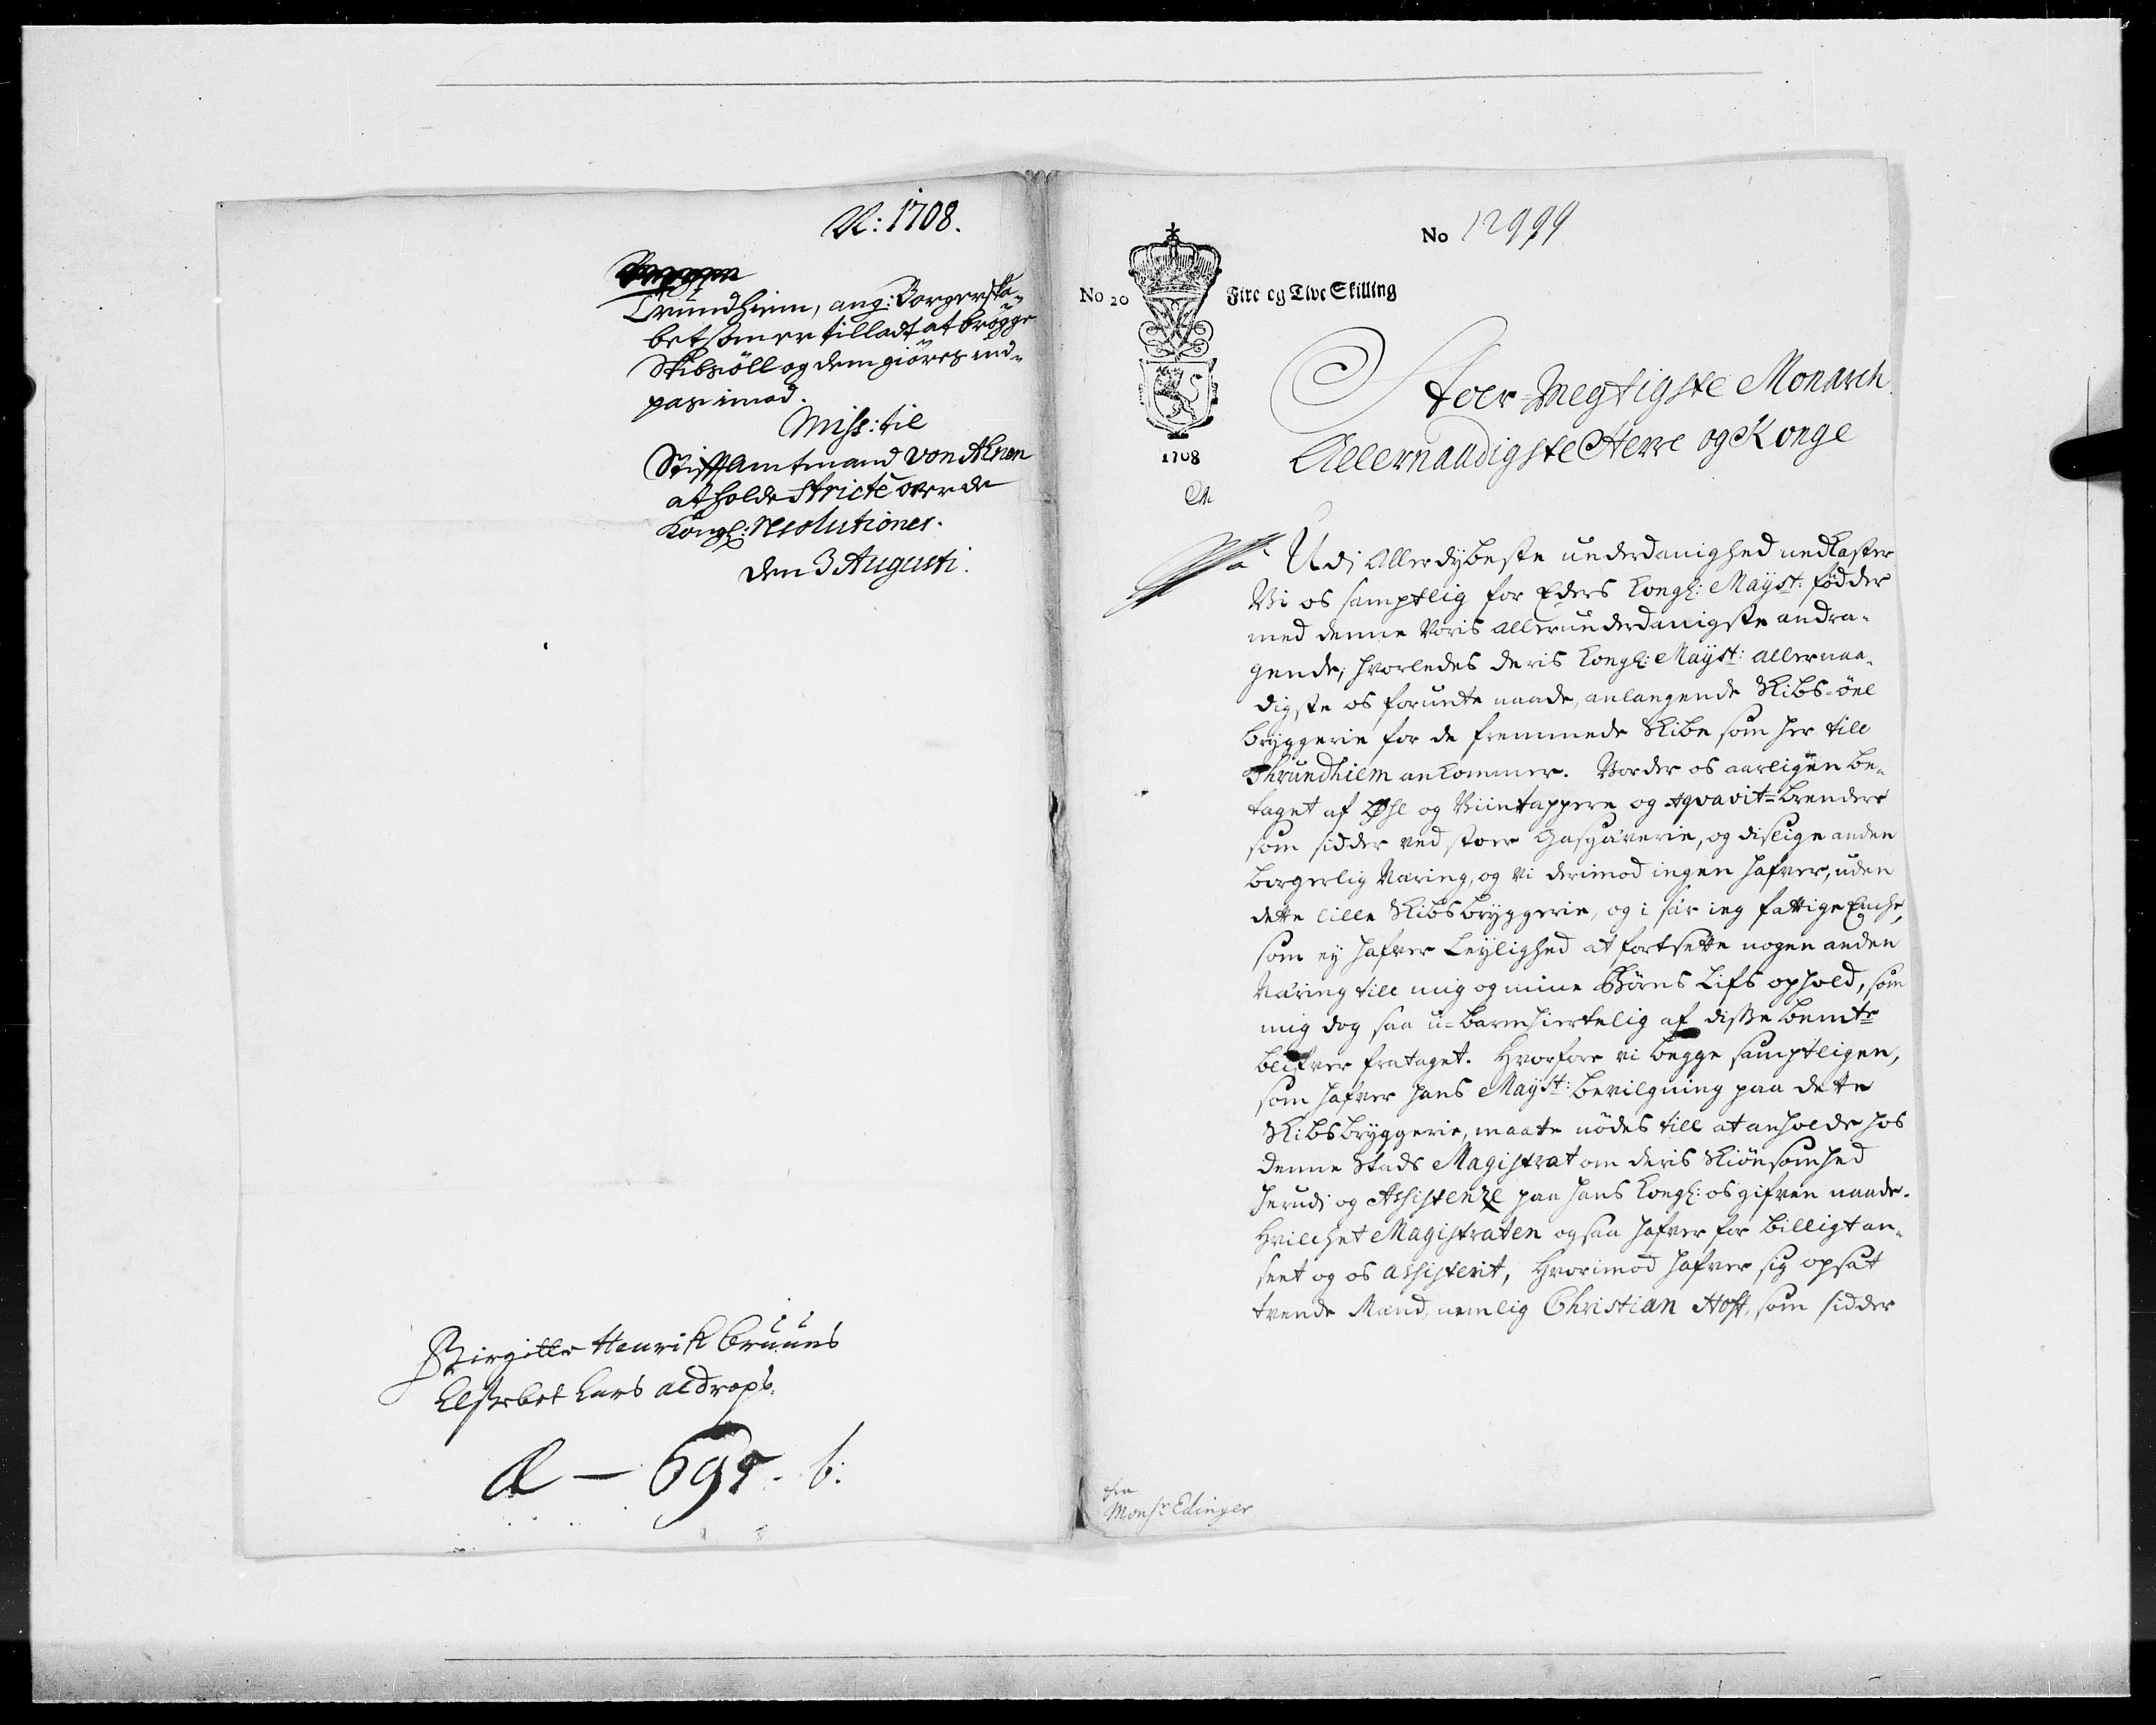 A: 1708.
Trundhiem, ang: Borgerska-
bet som er tilladt at brøgge
Skibsöll og dem giöres ind-
pas imod.
Miss: til
Stifftamtmand von Ahnen
at holde stricte over de
Kongl: Resolutioner.
den 3 Augusti.
Birgitte Henrik Bruuns
Elsebet Lars aldrops.
A — 695. b:
No 12999
No 20 Fire og Tive Skilling
1708
Stoer-Megtigste Monarch
Allernaadigste Herre og Konge
Udi Allerdybeste underdanighed nedkaster
Vi os samptlig for Eders Kongl: Mayst: födder
med denne Voris allerunderdanigste andra-
gende, hvorledes deris Kongl: Mayst: allernaa-
digste os forunte naade, anlangende Skibs-öel
bryggerie for de fremmede Skibe som her till
Thrundhiem ankommer. Vorder os aarligen be-
taget af Øhl og Viintappere og Aqvavit-brendere
som sidder ved stoer Gasgäverie, og dislige anden
borgerlig Næring, og vi derimod ingen hafver, uden
dette lille Skibsbryggerie, og i sær ieg fattige Enche,
som ey hafver Leylighed at fortsette nogen anden
Næring till mig og mine Börns Lifs ophold, som
mig dog saa u-barmhiertelig af disse bemte
blifver frataget. Hvorfore vi begge samptligen,
som hafver hans Mayst: bevilgning paa dette
Skibsbryggerie, maate nödes till at anholde hos
denne Stads Magistrat om deris Skiönsomhed
herudj og Assistenze paa hans Kongl: os gifven naade.
Hvilchet Magistraten ogsaa hafver for billigt an-
seet og os assisterit, Hvorimod hafver sig opsat
tvende Mænd, nemlig Christian Hoft, som sidder
fra
Monsr Edinger